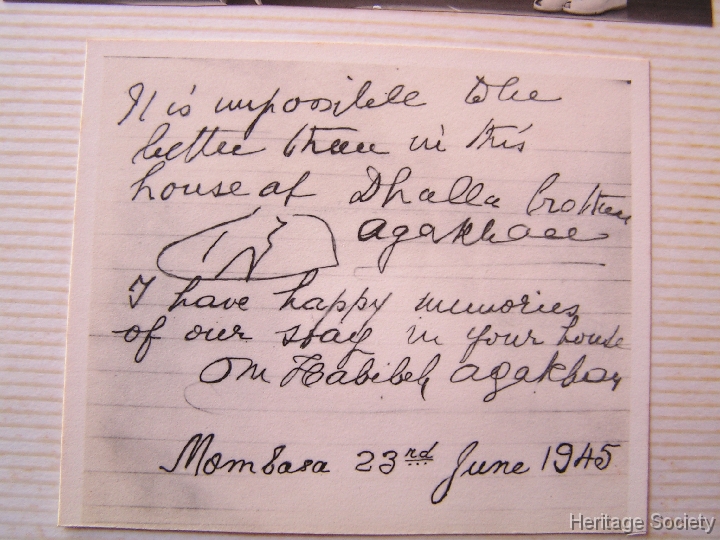 It is impossible to be
better than in this
house of Dhalla brothers
Agakhan
I have happy memories
of our stay in your house
Om Habibeh Agakhan
Mombasa 23rd June 1945
Heritage Society